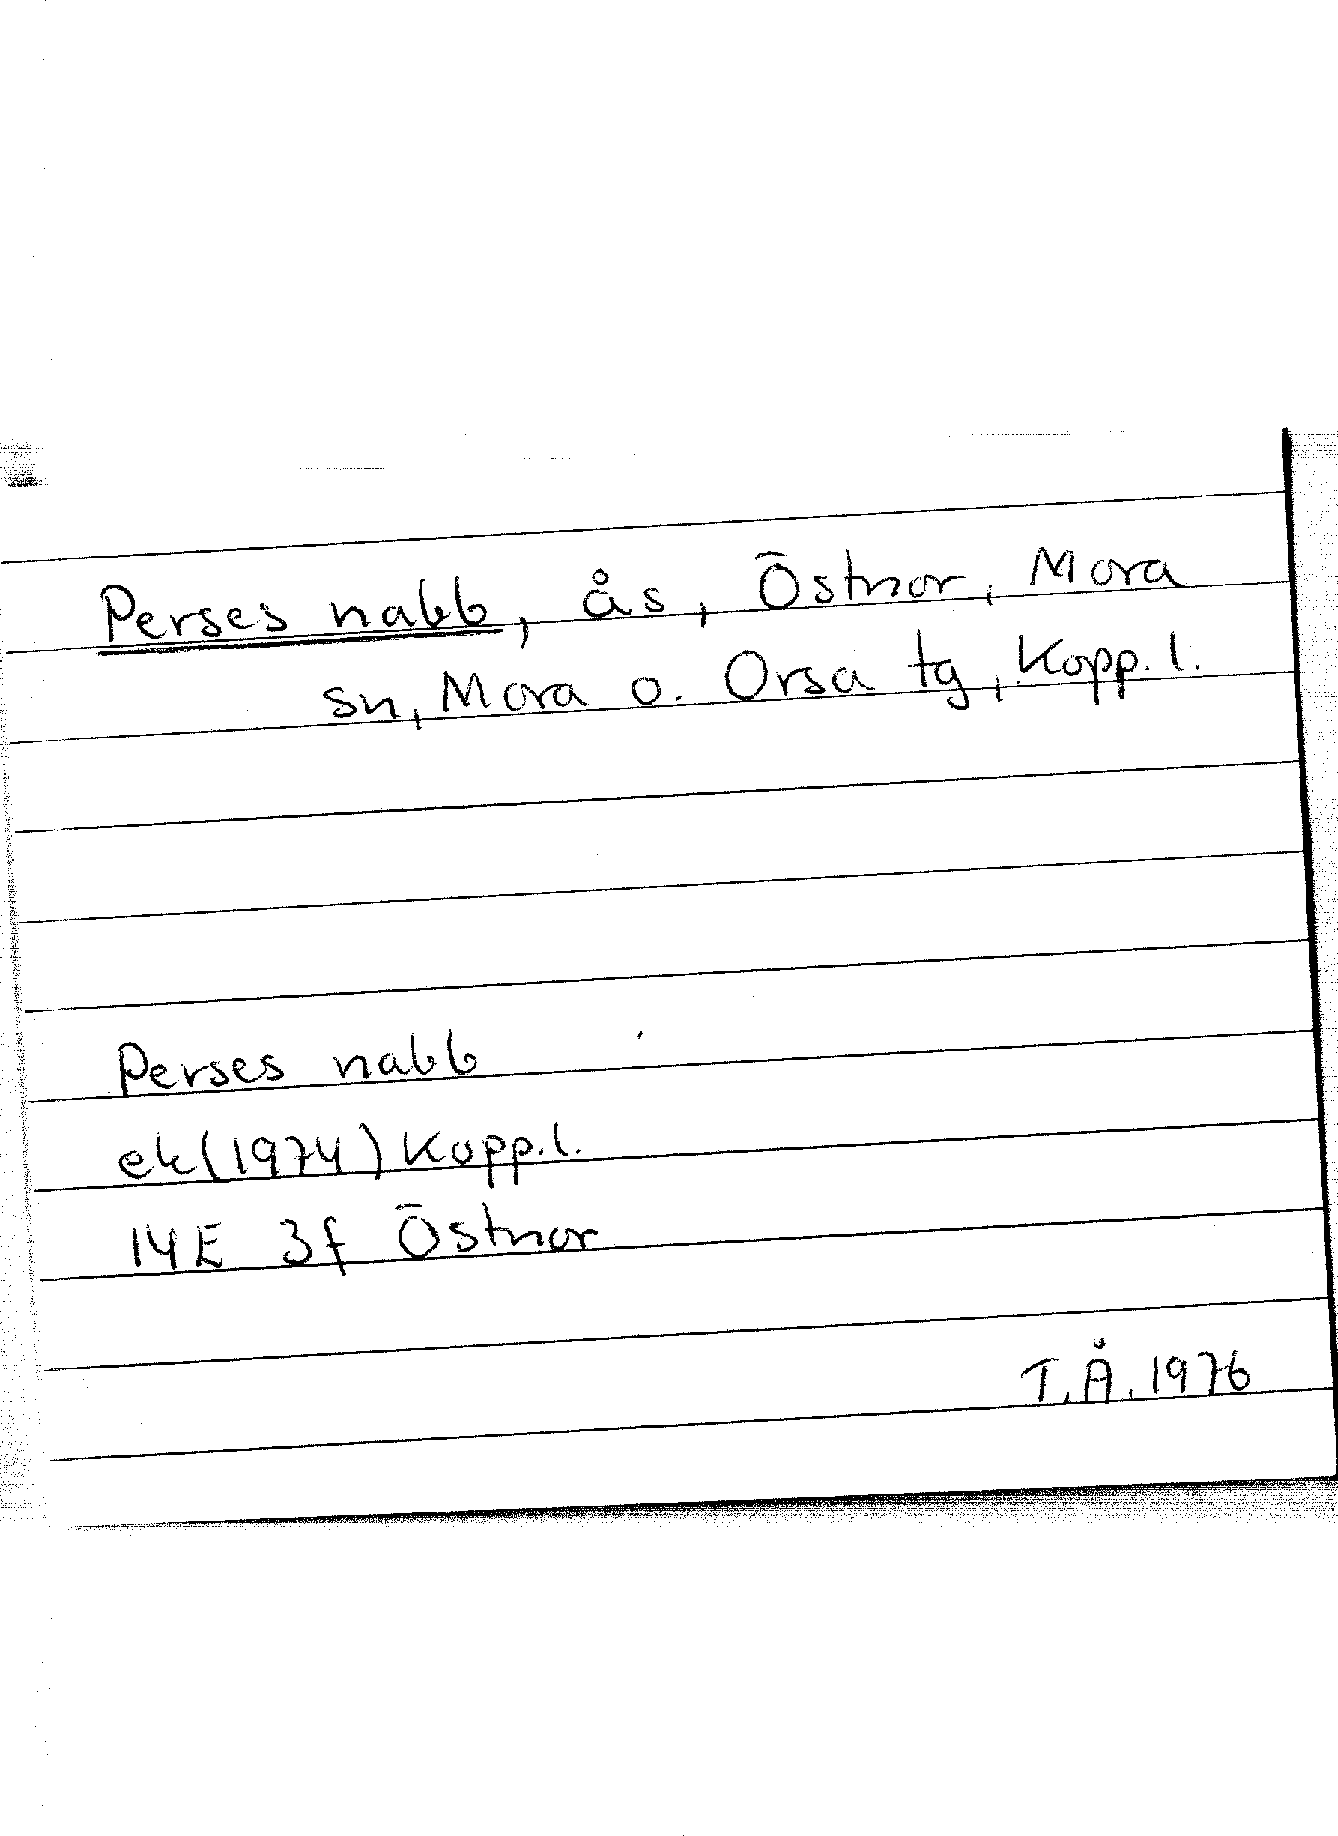 Perses nabb, ås, Östnor, Mora
sn, Mora o. Orsa tg, Kopp. l.
Perses nabb
ek (1974) Kopp. l.
14E 3f Östnor
T.Å. 1976